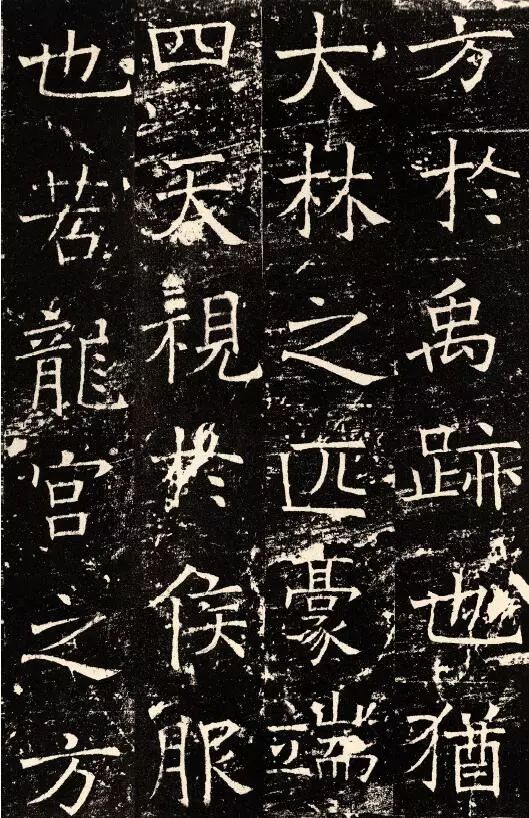 方於禹跡也猶
大林之匹豪端
四天視於侯服
也若龍宮之方